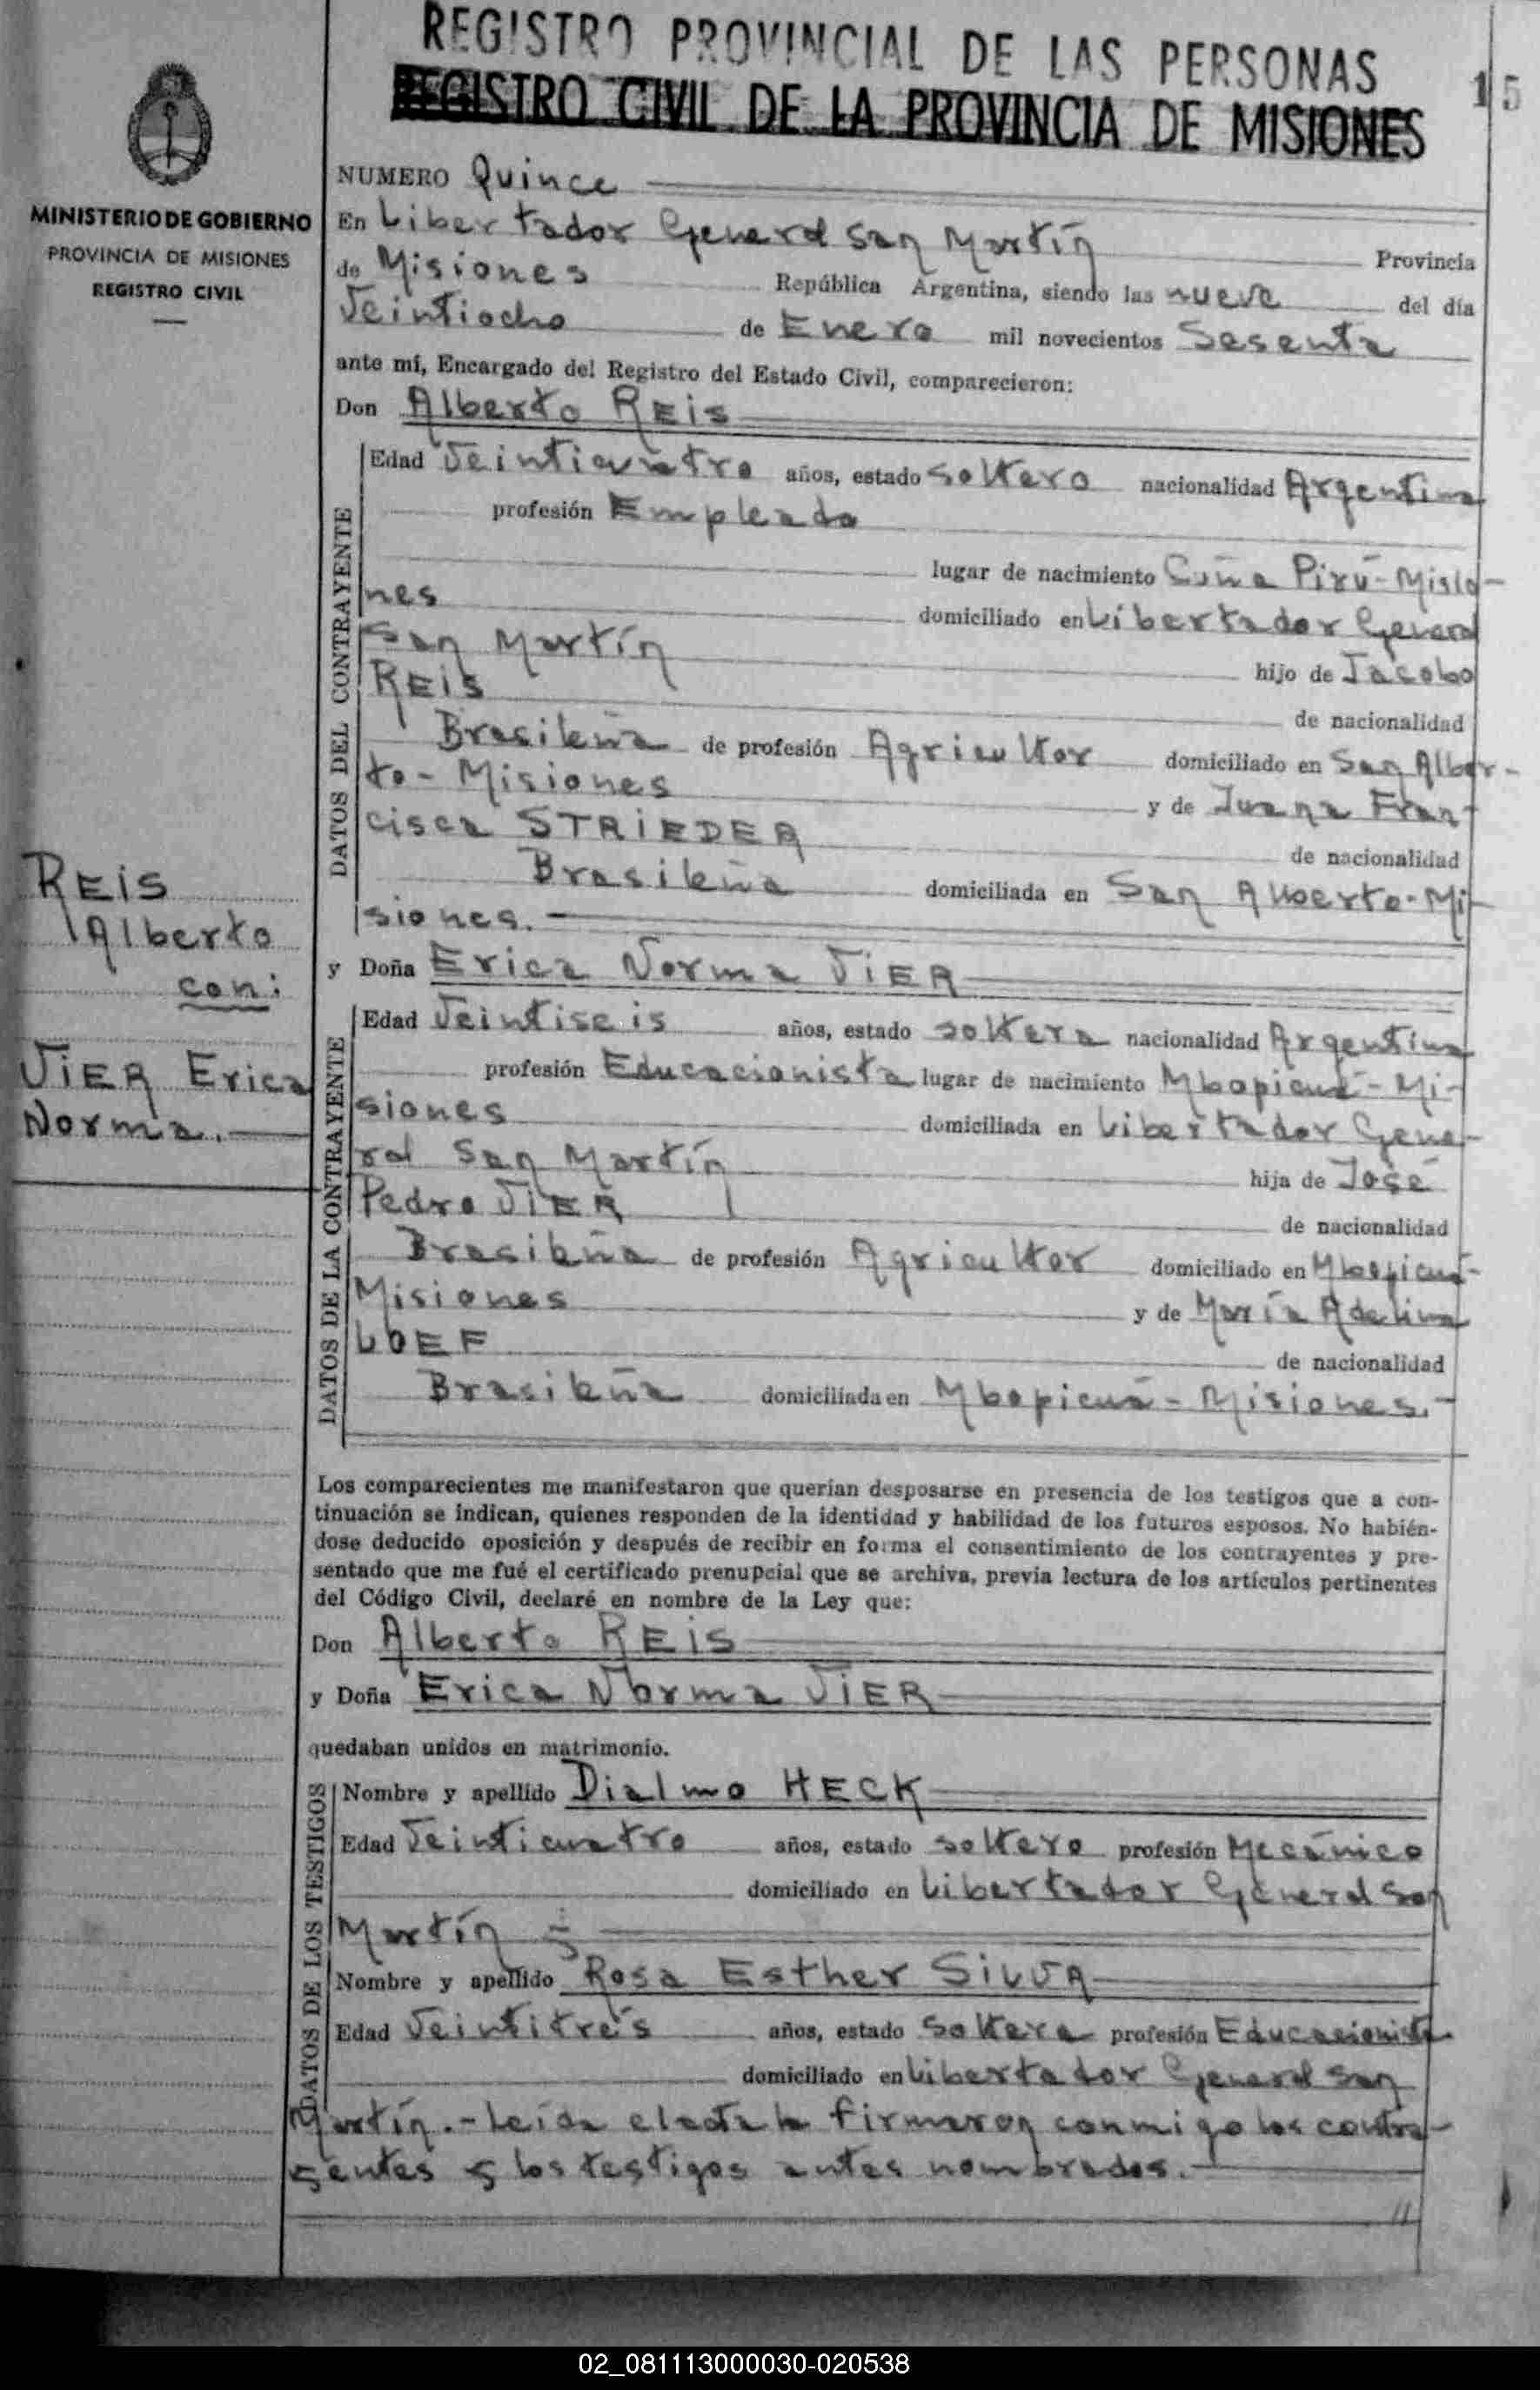 REGISTRO PROVINCIAL DE LAS PERSONAS
REGISTRO CIVIL DE LA PROVINCIA DE MISIONES
15
MINISTERIO DE GOBIERNO
PROVINCIA DE MISIONES
REGISTRO CIVIL
REIS
Alberto
con:
VIER Erica
Norma.
NUMERO Quince
En Libertador General San Martín Provincia
de Misiones República Argentina, siendo las nueve del día
Veintiocho de Enero mil novecientos Sesenta
ante mí, Encargado del Registro del Estado Civil, comparecieron:
Don Alberto REIS
DATOS DEL CONTRAYENTE
Edad Veinticuatro años, estado soltero nacionalidad Argentina
profesión Empleado
lugar de nacimiento Cuña Pirú-Misio-
nes domiciliado en Libertador General
San Martín hijo de Jacobo
REIS de nacionalidad
Brasileña de profesión Agricultor domiciliado en San Alber-
to-Misiones y de Juana Fran-
cisca STRIEDER de nacionalidad
Brasileña domiciliada en San Alberto-Mi-
siones.
y Doña Erica Norma VIER
DATOS DE LA CONTRAYENTE
Edad Veintiseis años, estado soltera nacionalidad Argentina
profesión Educacionista lugar de nacimiento Mbopicuá-Mi-
siones domiciliada en Libertador Gene-
ral San Martín hija de José
Pedro VIER de nacionalidad
Brasileña de profesión Agricultor domiciliado en Mbopicuá-
Misiones y de María Adelina
LOEF de nacionalidad
Brasileña domiciliada en Mbopicuá-Misiones.-
Los comparecientes me manifestaron que querían desposarse en presencia de los testigos que a con-
tinuación se indican, quienes responden de la identidad y habilidad de los futuros esposos. No habién-
dose deducido oposición y después de recibir en forma el consentimiento de los contrayentes y pre-
sentado que me fué el certificado prenupcial que se archiva, previa lectura de los artículos pertinentes
del Código Civil, declaré en nombre de la Ley que:
Don Alberto REIS
y Doña Erica Norma VIER
quedaban unidos en matrimonio.
DATOS DE LOS TESTIGOS
Nombre y apellido Dialmo HECK
Edad Veinticuatro años, estado soltero profesión Mecánico
domiciliado en Libertador General San
Martín
Nombre y apellido Rosa Esther SILVA
Edad Veintitrés años, estado soltera profesión Educacionista
domiciliado en Libertador General San
Martín.-Leída el acta la firmaron conmigo los contra-
yentes y los testigos antes nombrados.
02_081113000030-020538